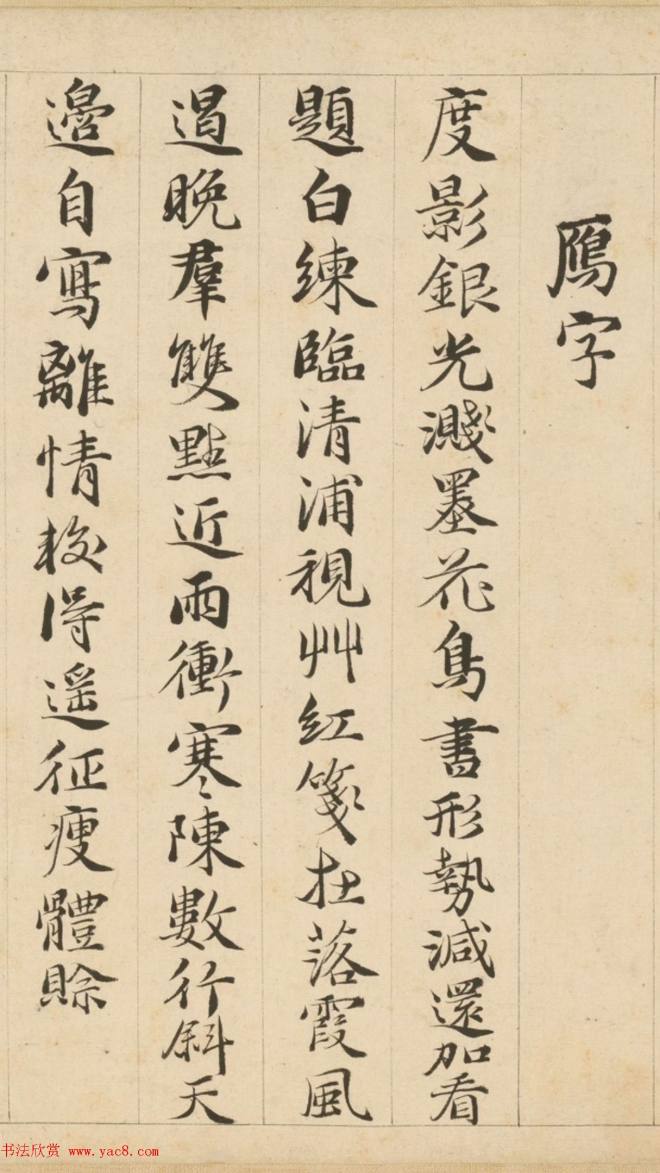 鴈字
度影銀光濺墨花鳥書形勢減還加看
題白練臨清浦視艸紅箋在落霞風
遏晚羣雙點近雨衝寒陳數行斜天
邊自寫離情挍得遥征瘦體賒
书法欣赏 www.yac8.com